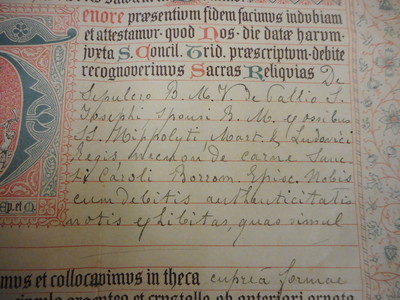 Tenore præsentium fidem facimus indubiam
et attestamur, quod Nos, die datæ harum,
juxta S. Concil. Trid. præscriptum, debite
recognoverimus Sacras Reliquias De
Sepulcro B. M. V. de Pallio S.
Josephi sponsi B. M. ex ossibus
SS. Hippolyti, Mart. & Ludovici
Regis, necnon de carne Sanc
ti Caroli Borrom. Episc. Nobis
cum debitis authenticitatis
notis exhibitas, quas simul
Ep. et M
imus et collocavimus in theca cupreâ formae
argenteo et crystallo ab anteriori ornata